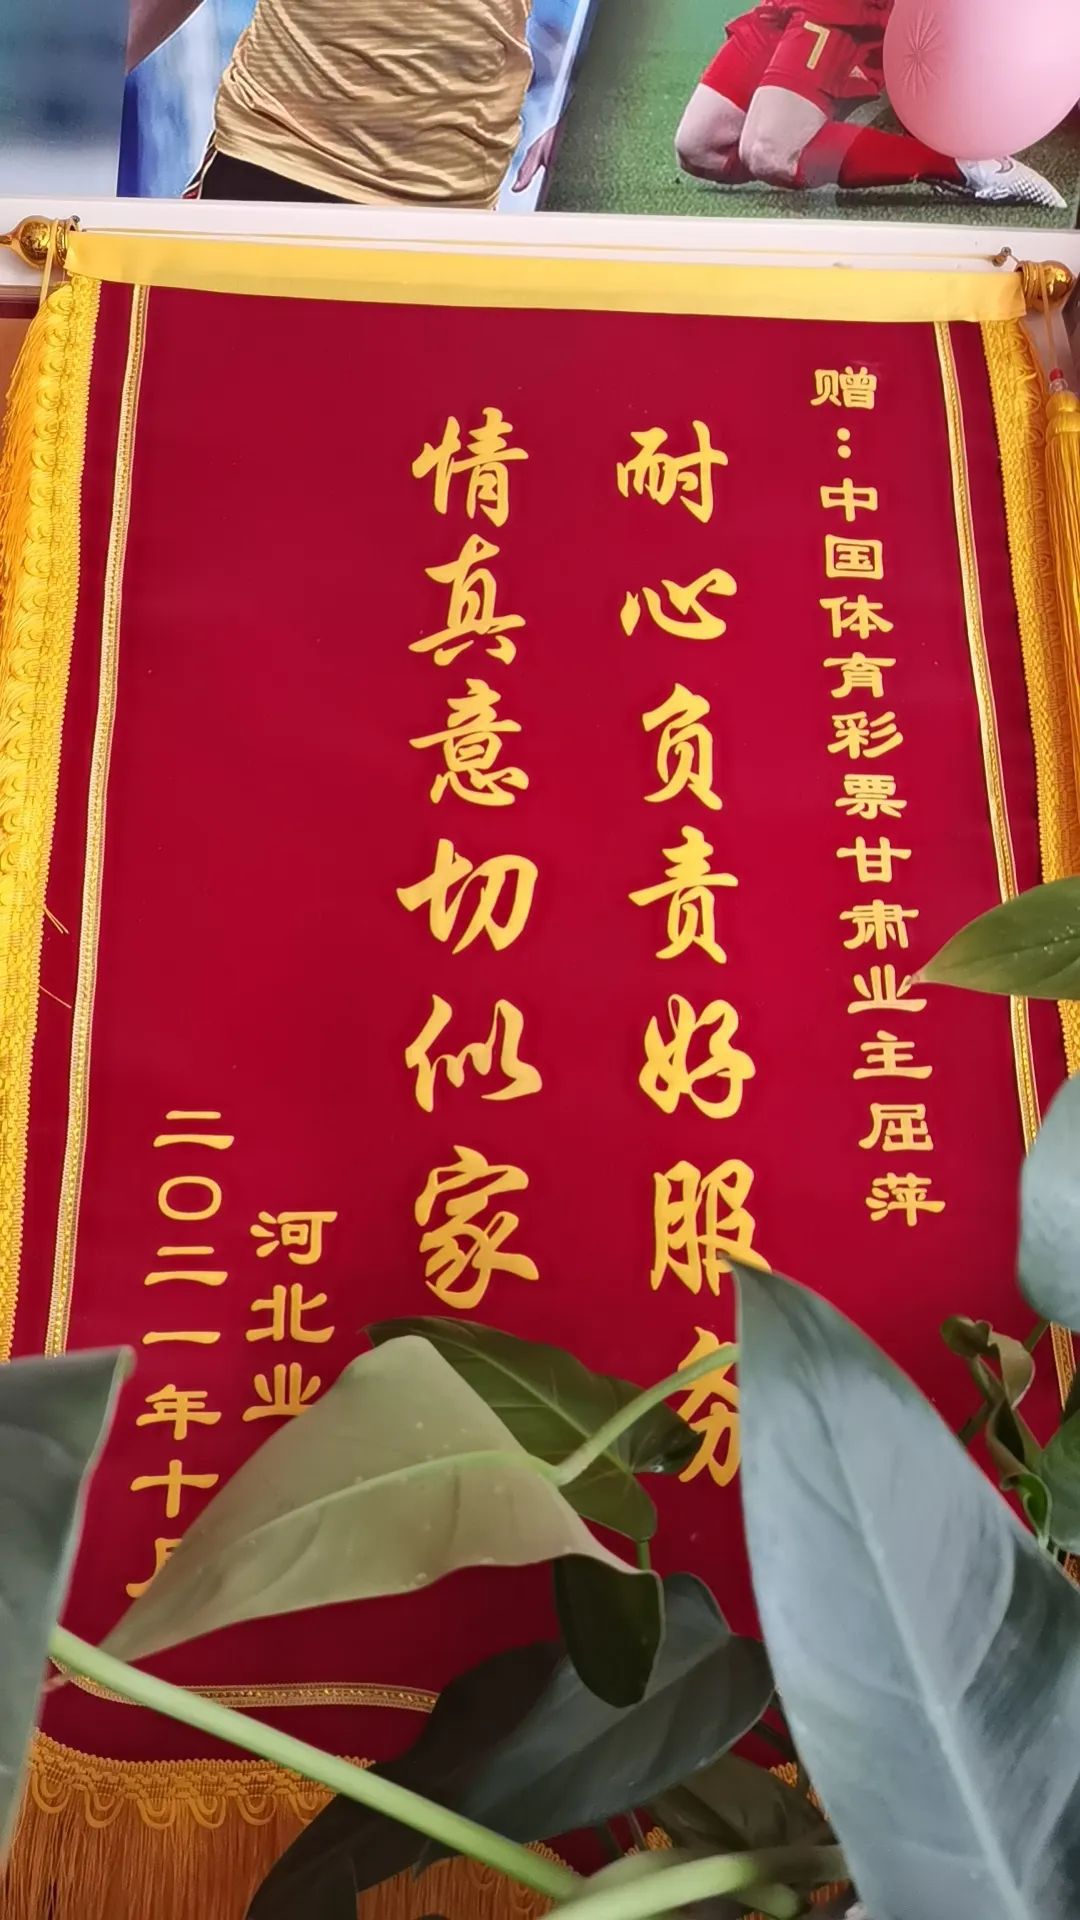 7
赠:中国体育彩票甘肃业主屈萍
耐心负责好服务
情真意切似家
河北业
二〇二一年十月